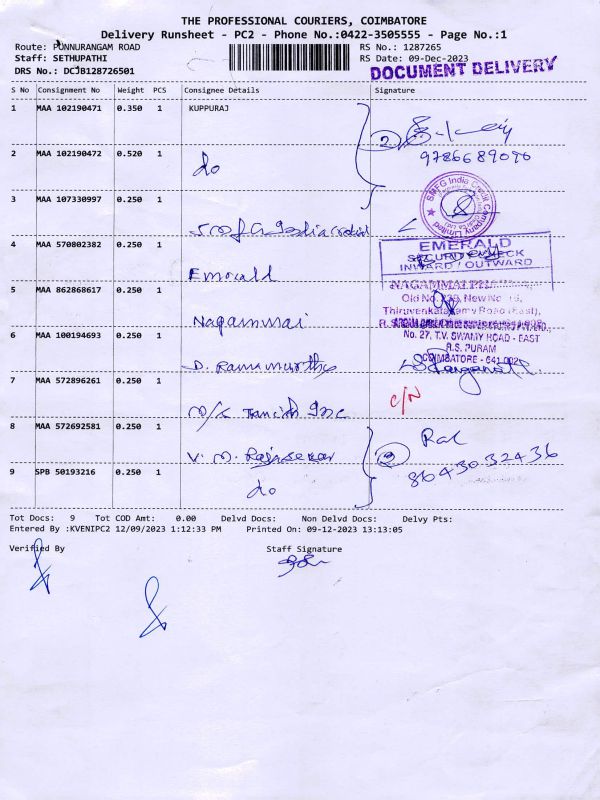 THE PROFESSIONAL COURIERS, COIMBATORE
Delivery Runsheet - PC2 - Phone No.:0422-3505555 - Page No.:1
Route: PUNNURANGAM ROAD
RS No.: 1287265
Staff: SETHUPATHI
RS Date: 09-Dec-2023
DRS No.: DCJB128726501
DOCUMENT DELIVERY
S No Consignment No Weight PCS Consignee Details Signature
1 MAA 102190471 0.350 1 KUPPURAJ
2
9786689090
2 MAA 102190472 0.520 1 do
3 MAA 107330997 0.250 1
SMFG India Credit Company Limited
4 MAA 570802382 0.250 1 Emerald
EMERALD
SECURITY CHECK
INWARD / OUTWARD
5 MAA 862868617 0.250 1 Nagammai
Old No. New No
Thiruvenkataswamy Road (East),
No. 27, T.V. SWAMY ROAD - EAST
R.S. PURAM
COIMBATORE - 641 002
6 MAA 100194693 0.250 1 D. Ramamurthy
7 MAA 572896261 0.250 1 M/s Inc
C/N
8 MAA 572692581 0.250 1 V. M. Rajasekar
8043032436
9 SPB 50193216 0.250 1 do
Tot Docs: 9 Tot COD Amt: 0.00 Delvd Docs: Non Delvd Docs: Delvy Pts:
Entered By :KVENIPC2 12/09/2023 1:12:33 PM Printed On: 09-12-2023 13:13:05
Verified By Staff Signature